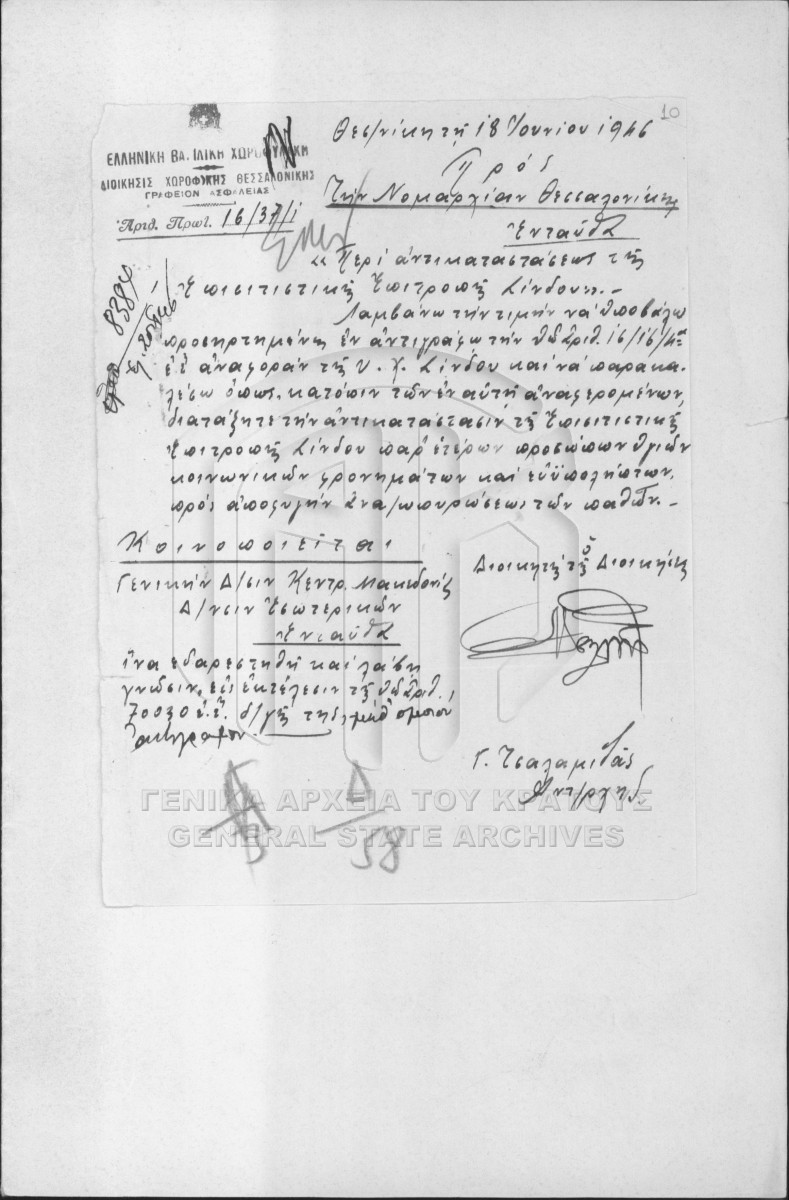 10
Θεσ/νίκη τῇ 18 Ἰουνίου 1946
ΕΛΛΗΝΙΚΗ ΒΑΣΙΛΙΚΗ ΧΩΡΟΦΥΛΑΚΗ
ΔΙΟΙΚΗΣΙΣ ΧΩΡΟΦ/ΚΗΣ ΘΕΣΣΑΛΟΝΙΚΗΣ
ΓΡΑΦΕΙΟΝ ΑΣΦΑΛΕΙΑΣ
Ἀριθ. Πρωτ. 16/37/1
Πρός
Τήν Νομαρχίαν Θεσσαλονίκης
Ἐνταῦθα
« Περί ἀντικαταστάσεως τῆς
Ἐπισιτιστικῆς Ἐπιτροπῆς Σίνδου». –
8384
Λαμβάνω τήν τιμήν νά ὑποβάλω
προσηρτημένως ἐν ἀντιγράφῳ τήν ὑπ' ἀριθ. 16/16/4α
ἐ.ἔ. ἀναφοράν τῆς Υ. Χ. Σίνδου καί νά παρακα-
λέσω ὅπως, κατόπιν τῶν ἐν αὐτῇ ἀναφερομένων,
διατάξητε τήν ἀντικατάστασιν τῆς Ἐπισιτιστικῆς
Ἐπιτροπῆς Σίνδου παρ' ἑτέρων προσώπων ὑγιῶν
κοινωνικῶν φρονημάτων καί εὐϋπολήπτων,
πρός ἀποφυγήν ἀναζωπυρώσεως τῶν παθῶν. –
Κοινοποιεῖται
Γενικήν Δ/σιν Κεντρ. Μακεδονίας
Δ/νσιν Ἐσωτερικῶν
Ἐνταῦθα
ἵνα εὐαρεστηθῇ καί λάβῃ
γνῶσιν, εἰς ἐκτέλεσιν τῆς ὑπ' ἀριθ.
70030 ἐ.ἔ. δ/γῆς της, μεθ' ὁμοίου
ἀντιγράφου.
Ὁ
Διοικητής τῆς Διοικήσεως
Γ. Τσαλαμιδᾶς
Ἀντ/ρχης
Δ
58
ΓΕΝΙΚΑ ΑΡΧΕΙΑ ΤΟΥ ΚΡΑΤΟΥΣ
GENERAL STATE ARCHIVES